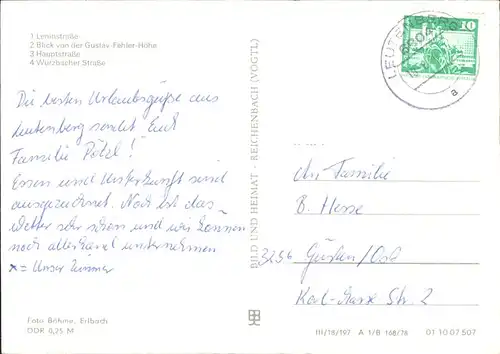 1 Leninstraße
2 Blick von der Gustav-Fehler-Höhe
3 Hauptstraße
4 Wurzbacher Straße
Die besten Urlaubsgrüße aus
Leutenberg sendet Euch
Familie Pötzl!
Essen und Unterkunft sind
ausgezeichnet. Noch ist das
Wetter sehr schön und wir können
noch allerhand unternehmen
x = Unser Zimmer
Foto Böhme, Erlbach
DDR 0,25 M
BILD UND HEIMAT - REICHENBACH (VOGTL)
LEUTENBERG
10
a
An Familie
B. Hesse
Güsten
Karl-Marx Str. 2
III/18/197 A 1/B 168/78 01 10 07 507